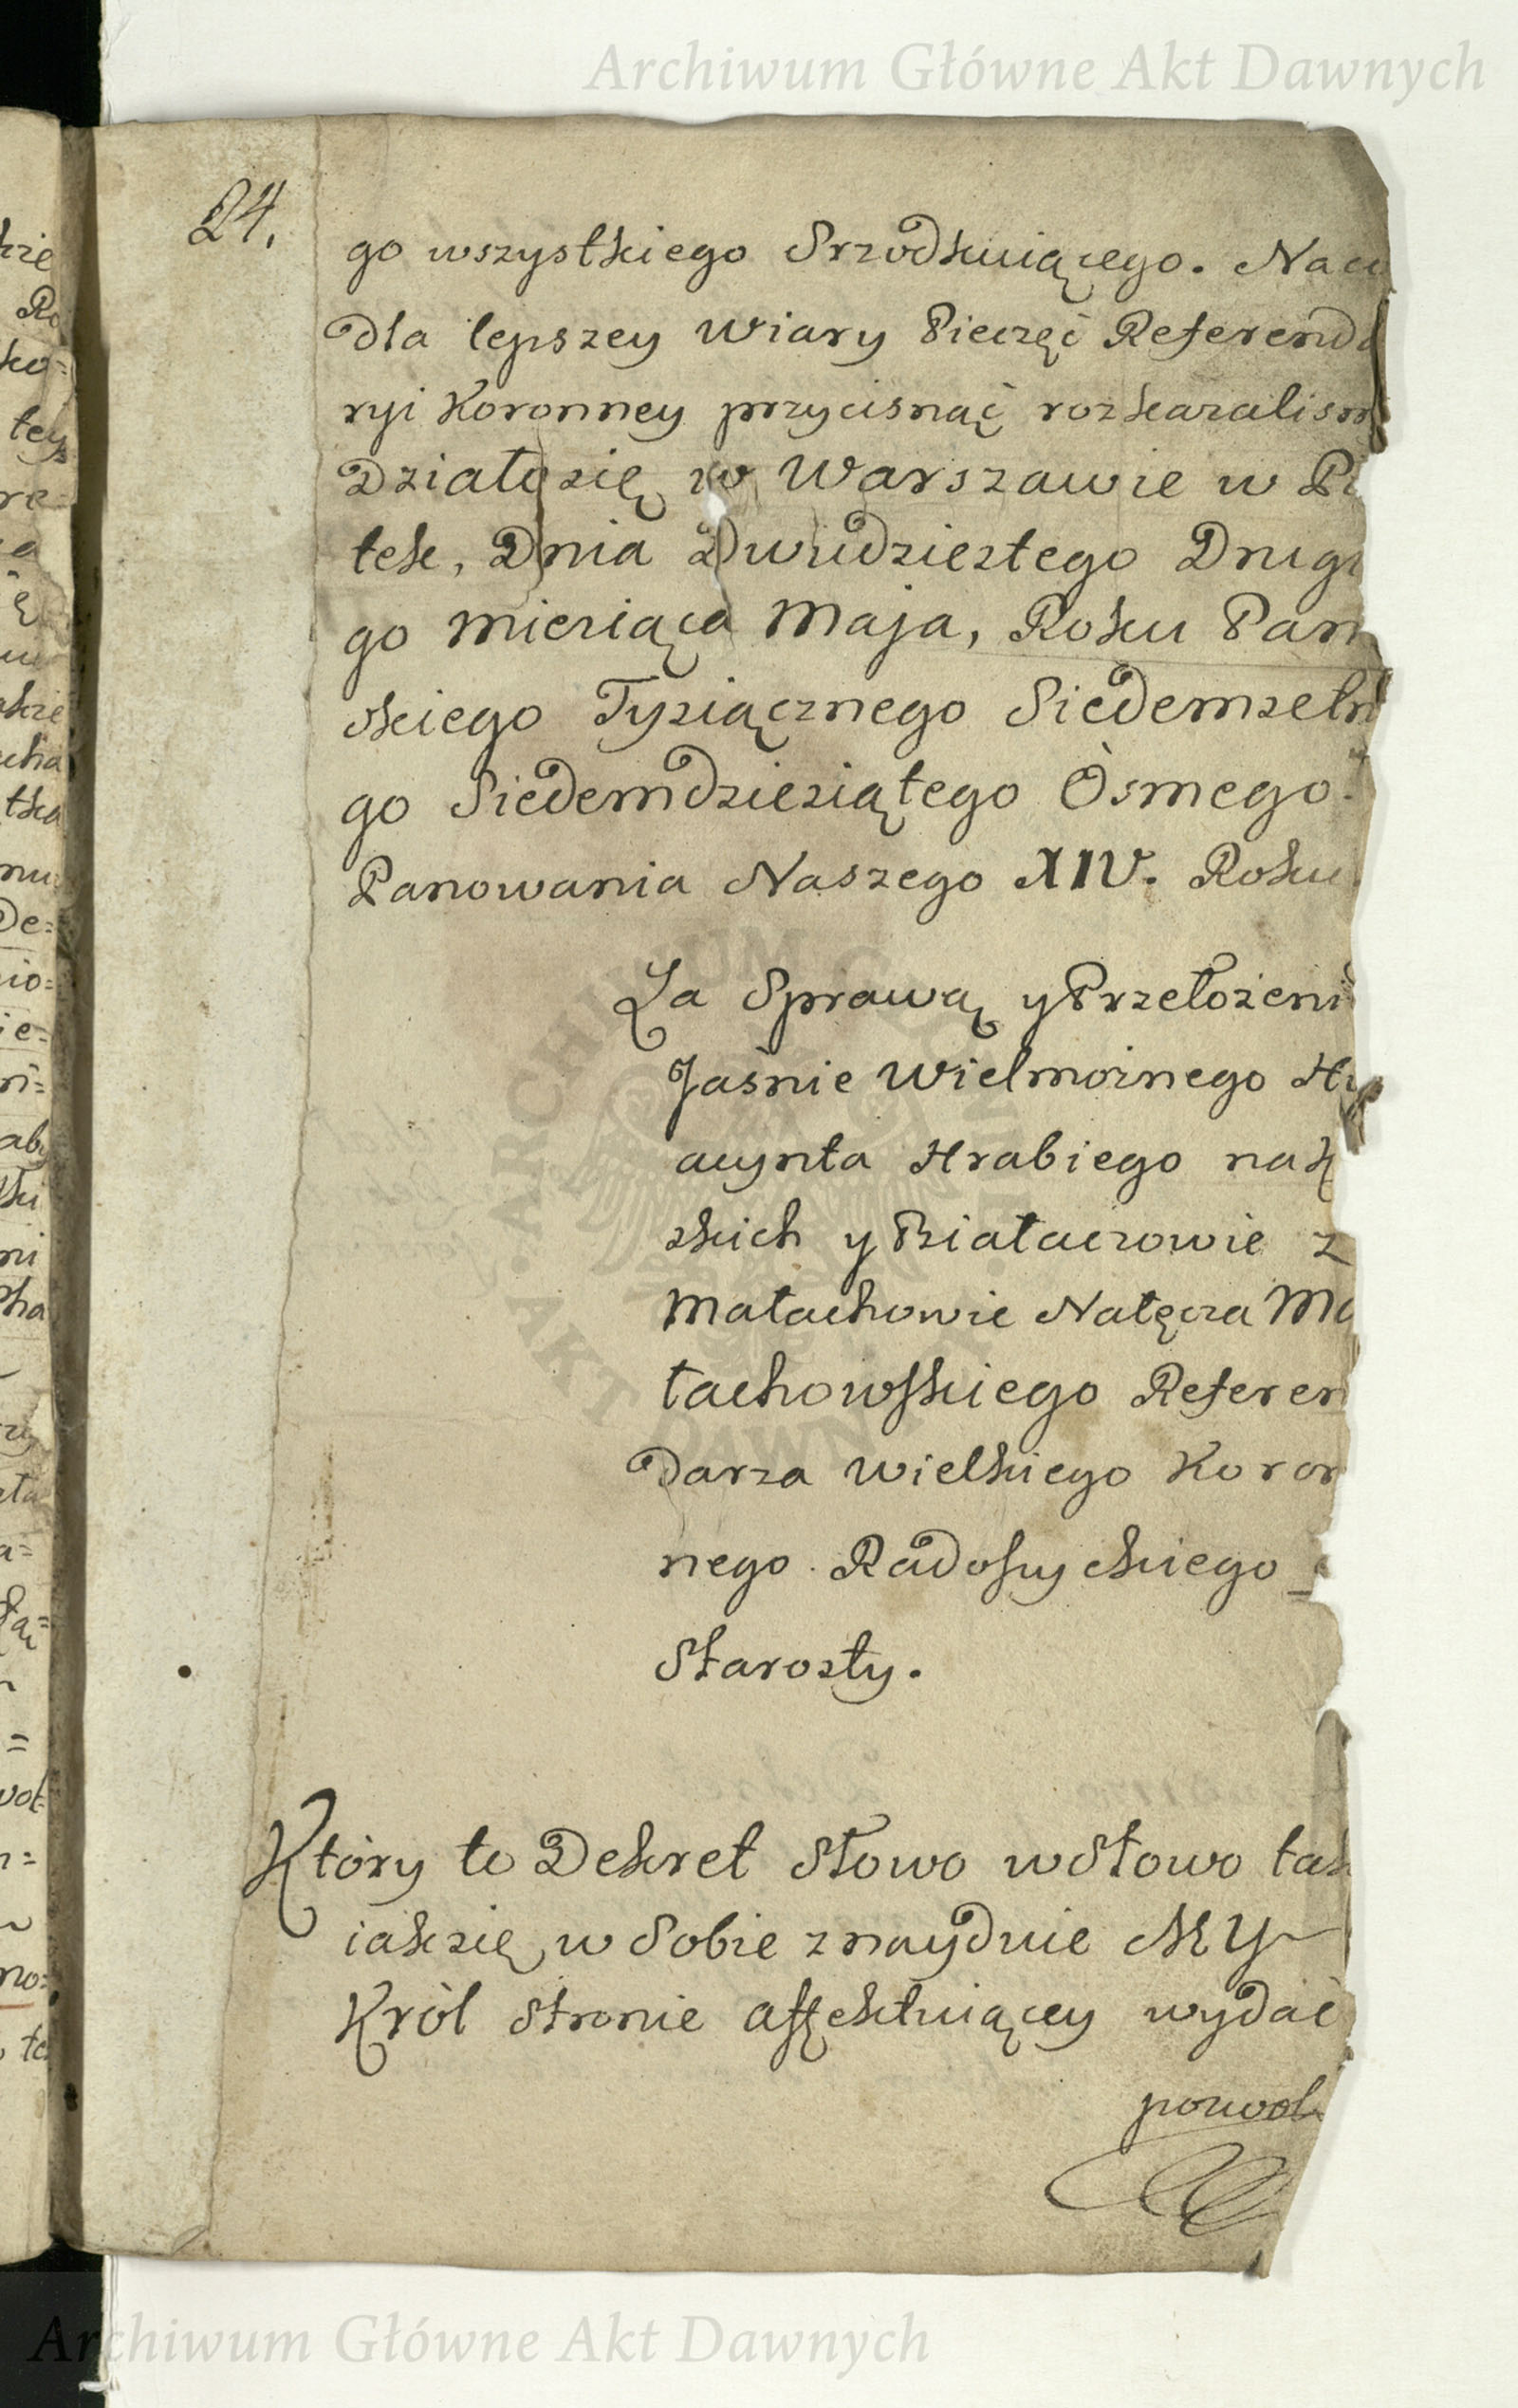 Archiwum Główne Akt Dawnych
24.
go wszystkiego Srzodkuiącego. Na
dla lepszey Wiary Pieczęć Referend
ryi Koronney przycisnąć rozkazalism
Działo się w Warszawie w Pi
tek, Dnia Dwudziestego Drugi
go Miesiąca Maja, Roku Pań
skiego Tysiącznego Siedemsetn
go Siedemdziesiątego Osmego.
Panowania Naszego XIV. Roku
Za Sprawą y Przełożeni
Jaśnie Wielmożnego Hy
acynta Hrabiego na
skich y Białaczowie z
Małachowic Nałęcza Ma
łachowskiego Referen
Darza Wielkiego Koron
nego Radoszyckiego
Starosty.
Który to Dekret Słowo w Słowo tak
iak się w Sobie znayduie MY
Król Stronie affektuiącey wydać
pozwol
ARCHIWUM GŁÓWNE AKT DAWNYCH
Archiwum Główne Akt Dawnych